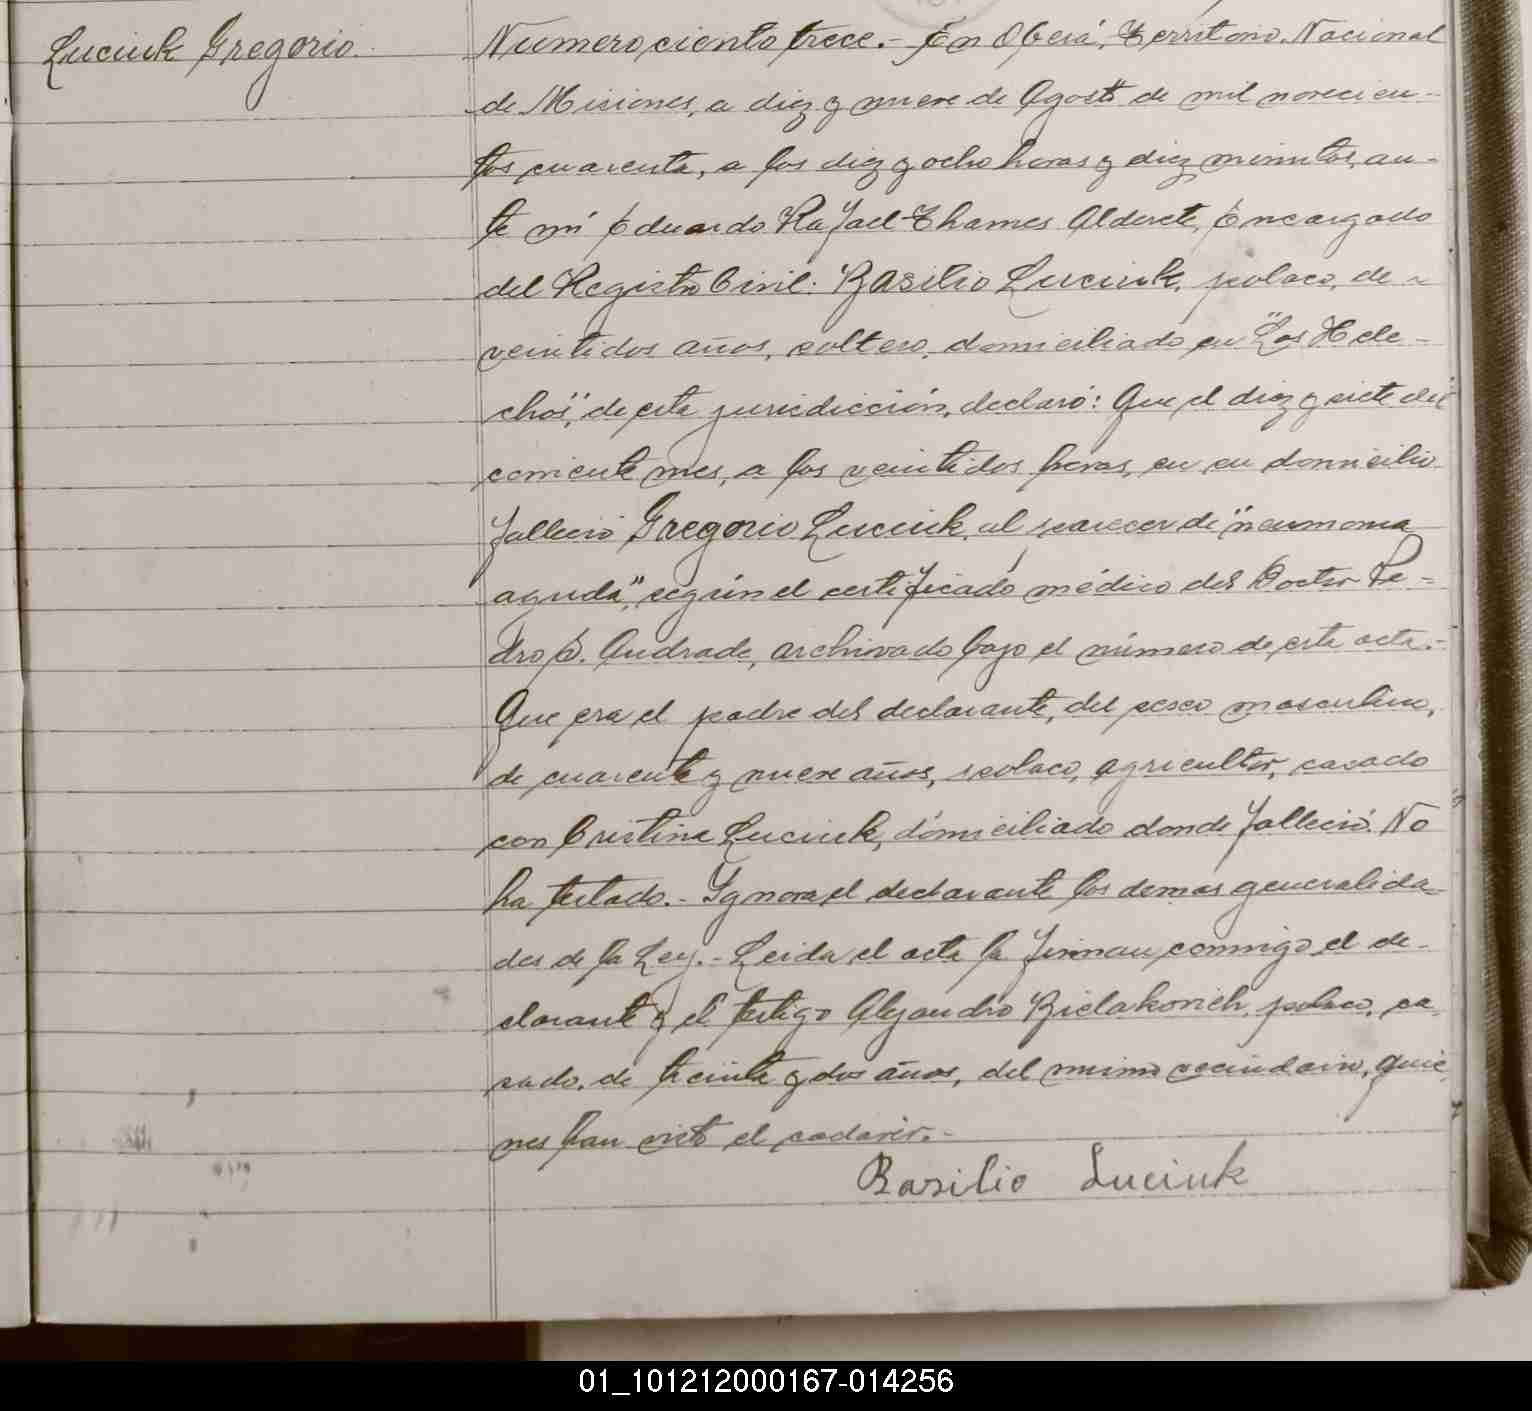 Luciuk Gregorio.
Numero ciento trece.- En Oberá, Territorio Nacional
de Misiones, a diez y nueve de Agosto de mil novecien-
tos cuarenta, a las diez y ocho horas y diez minutos, an-
te mí Eduardo Rafael Thames Alderete, Encargado
del Registro Civil: Basilio Luciuk, polaco, de
veintidos años, soltero, domiciliado en "Los Hele-
chos", de esta jurisdicción, declaró: Que el diez y siete del
corriente mes, a las veintidos horas, en su domicilio
falleció Gregorio Luciuk, al parecer de "neumonia
aguda", según el certificado médico del Doctor Pe-
dro E. Andrade, archivado bajo el número de esta acta.-
Que era el padre del declarante, del sexo masculino,
de cuarenta y nueve años, polaco, agricultor, casado
con Cristina Luciuk, domiciliado donde falleció. No
ha testado.- Ygnora el declarante las demas generalida-
des de la Ley.- Leida el acta la firman conmigo el de-
clarante y el testigo Alejandro Bielakovich, polaco, ca-
sado, de treinta y dos años, del mismo vecindario, quie-
nes han visto el cadaver.-
Basilio Luciuk
01_101212000167-014256